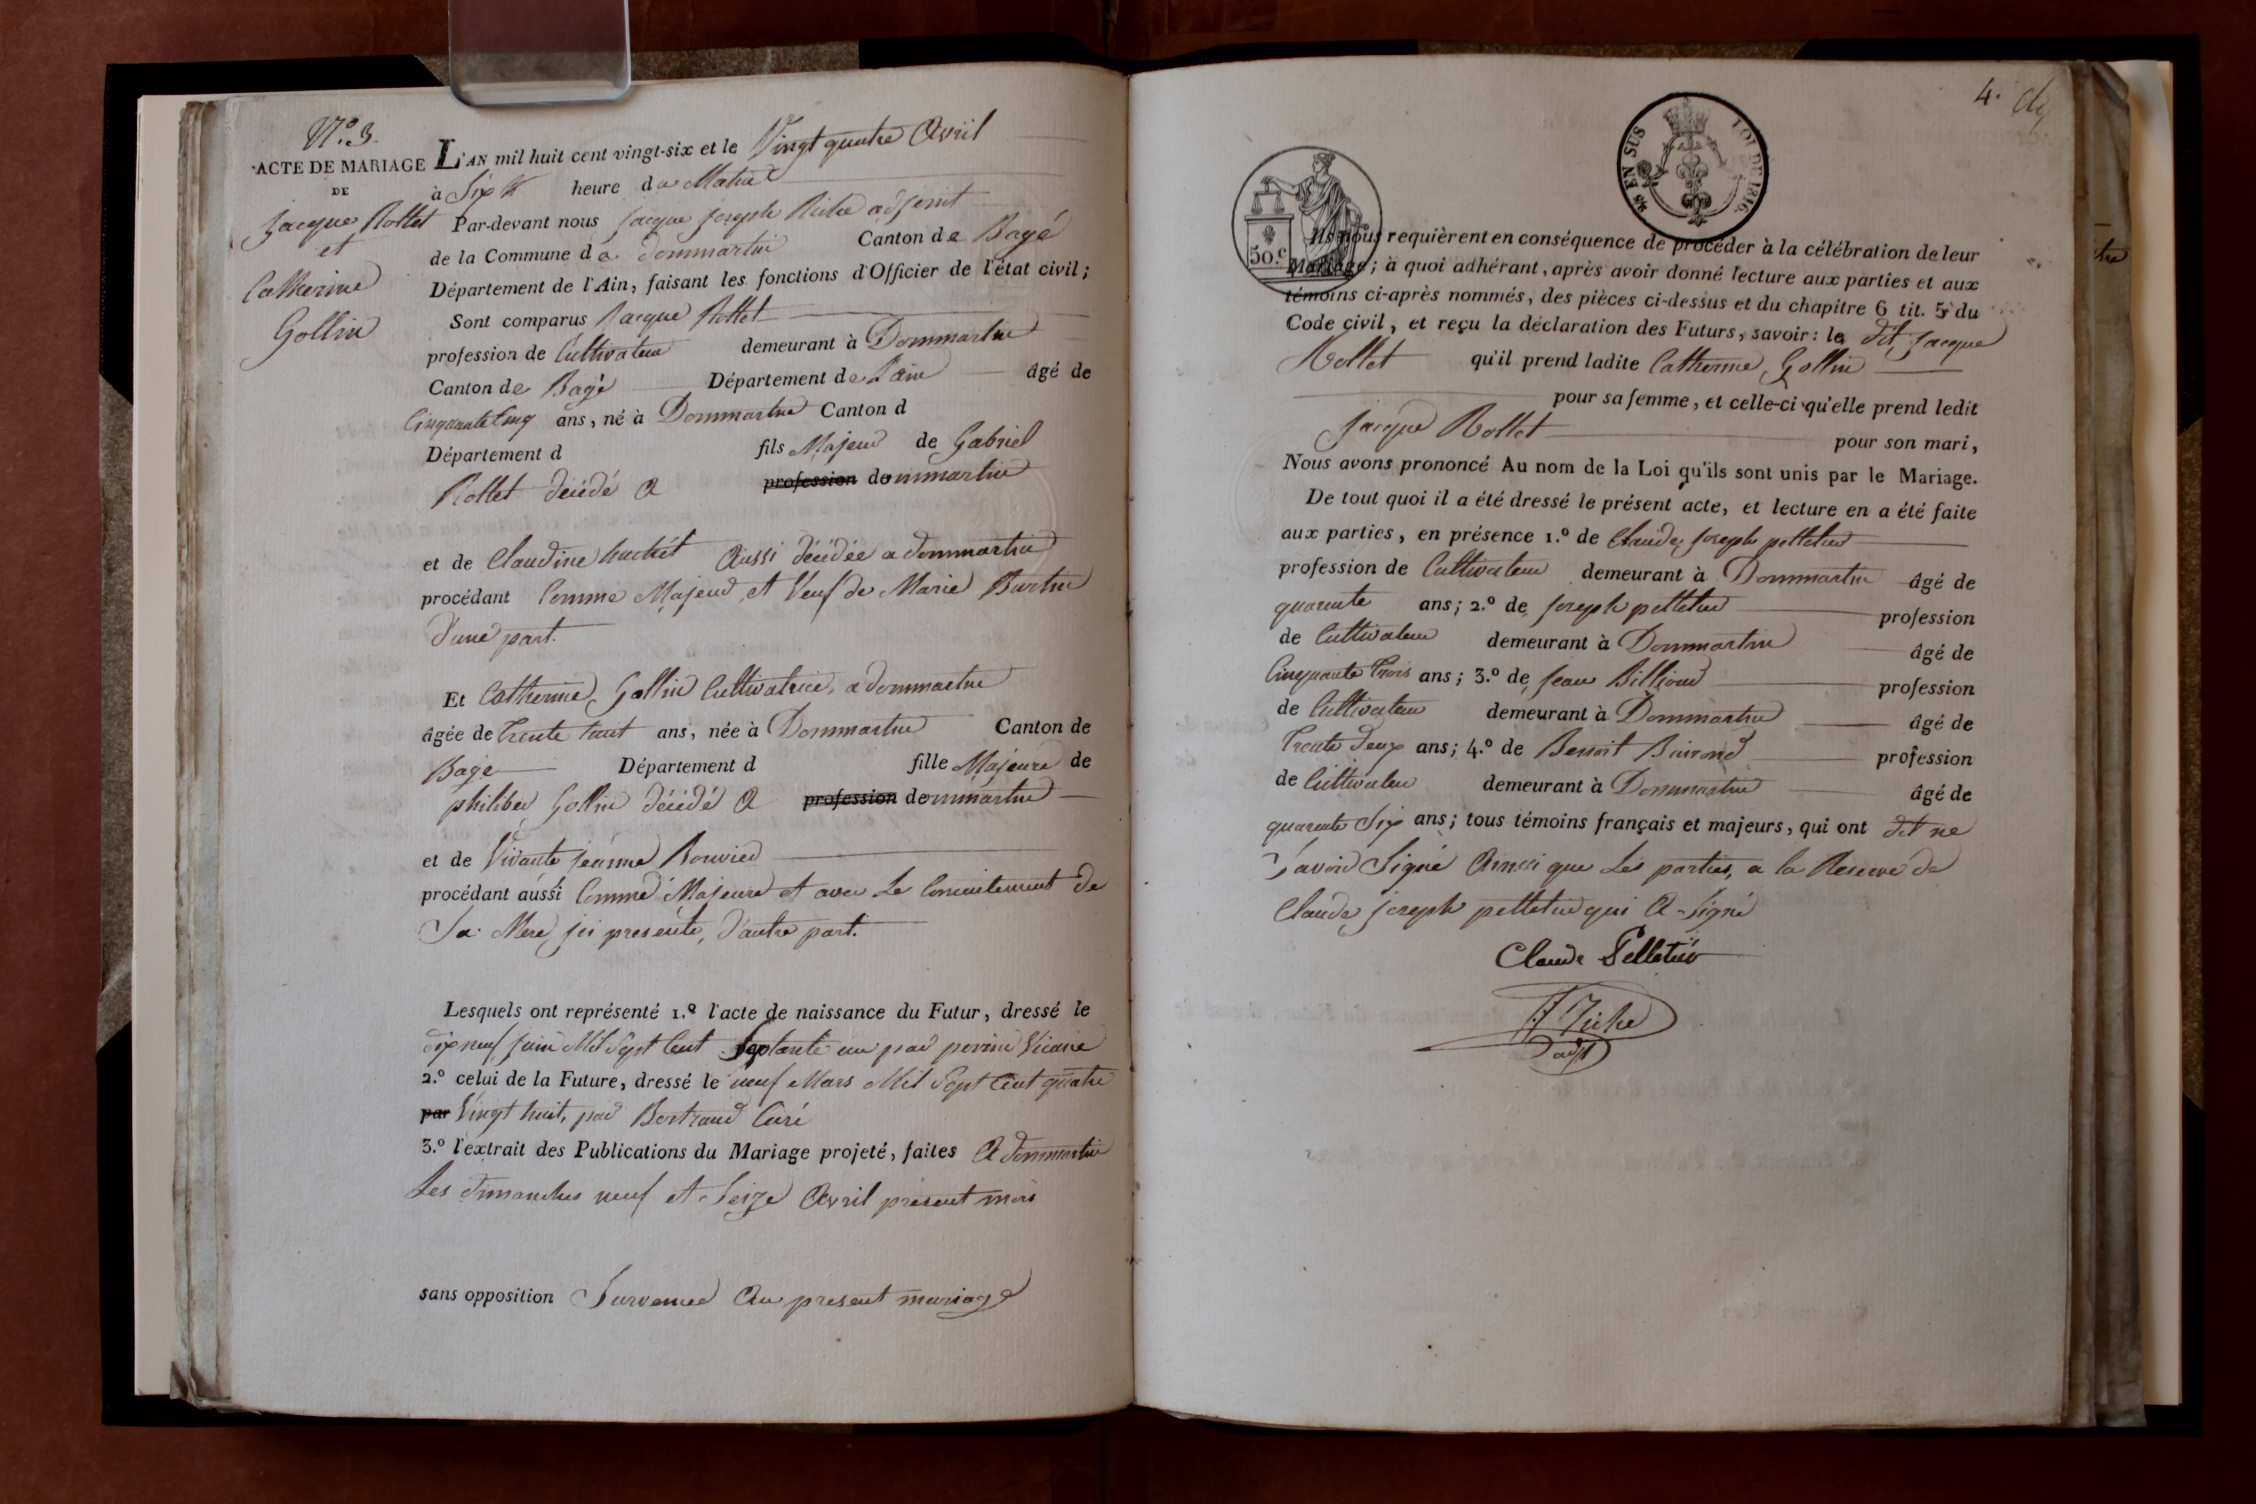 N.o 3.
ACTE DE MARIAGE
DE
Jacque Rollet
et
Catherine
Gollin
L'AN mil huit cent vingt-six et le Vingt quatre Avril
à Six heure du Matin
Par-devant nous Jacque Joseph adjoint
de la Commune de dommartin Canton de Bagé
Département de l'Ain, faisant les fonctions d'Officier de l'état civil;
Sont comparus Jacque Rollet
profession de Cultivateur demeurant à Dommartin
Canton de Bagé Département de l'ain âgé de
Cinquante Cinq ans, né à Dommartin Canton d
Département d fils Majeur de Gabriel
Rollet décédé a profession dommartin
et de Claudine huchet Aussi décédée a dommartin
procédant Comme Majeur et Veuf de Marie Burtin
d'une part.
Et Catherine Gollin Cultivatrice, a dommartin
âgée de trente huit ans, née à Dommartin Canton de
Bage Département d fille Majeure de
philiber Gollin décédé a profession dommartin
et de Vivante jeanne Bouvier
procédant aussi Comme Majeure et avec Le Consentement de
Sa Mere ici presente, d'autre part.
Lesquels ont représenté 1.o l'acte de naissance du Futur, dressé le
dix neuf juin Mil Sept Cent Septante un par perrin Vicaire
2.o celui de la Future, dressé le neuf Mars Mil Sept Cent quatre
par Vingt huit, par Bertrand Curé
3.o l'extrait des Publications du Mariage projeté, faites A dommartin
Les dimanches neuf et Seize Avril présent mois
sans opposition Survenue Au present mariage
4.
EN SUS
LOI DE 1816.
50.c
Ils nous requièrent en conséquence de procéder à la célébration de leur
Mariage; à quoi adhérant, après avoir donné lecture aux parties et aux
témoins ci-après nommés, des pièces ci-dessus et du chapitre 6 tit. 5 du
Code civil, et reçu la déclaration des Futurs, savoir: le dit Jacque
Rollet qu'il prend ladite Catherine Gollin
pour sa femme, et celle-ci qu'elle prend ledit
Jacque Rollet pour son mari,
Nous avons prononcé Au nom de la Loi qu'ils sont unis par le Mariage.
De tout quoi il a été dressé le présent acte, et lecture en a été faite
aux parties, en présence 1.o de Claude Joseph pelletier
profession de Cultivateur demeurant à Dommartin âgé de
quarente ans; 2.o de Joseph pelletier profession
de Cultivateur demeurant à Dommartin âgé de
Cinquante Trois ans; 3.o de Jean Billioud profession
de Cultivateur demeurant à Dommartin âgé de
Trente deux ans; 4.o de Benoit profession
de Cultivateur demeurant à Dommartin âgé de
quarente Six ans; tous témoins français et majeurs, qui ont dit ne
Savoir Signé Ainsi que Les parties, a la Reserve de
Claude joseph pelletier qui A Signé
Claude Pelletier
adjt